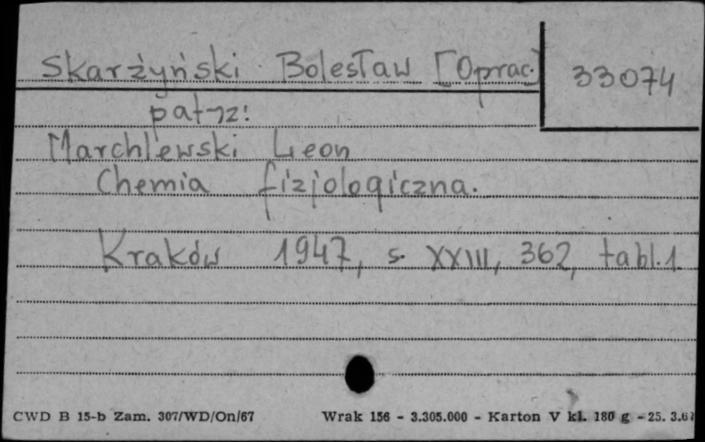 Skarżyński Bolesław [Oprac.] 33074
patrz:
Marchlewski Leon
Chemia fizjologiczna.
Kraków 1947, s. XXIII, 362, tabl. 1.
CWD B 15-b Zam. 307/WD/On/67 Wrak 156 - 3.305.000 - Karton V kl. 180 g - 25. 3.6